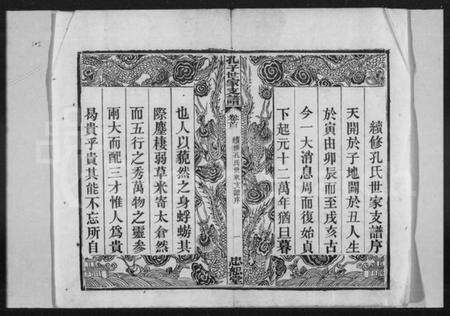 續修孔氏世家支譜序
天開於子地闢於丑人生
於寅由卯辰而至戌亥古
今一大消息周而復始貞
下起元十二萬年猶旦暮
孔子世家支譜
卷首
續修孔氏世家支譜序
一
忠恕堂
也人以藐然之身蜉蝣其
際塵棲弱草米寄太倉然
而五行之秀萬物之靈參
兩大而配三才惟人為貴
曷貴乎貴其能不忘所自